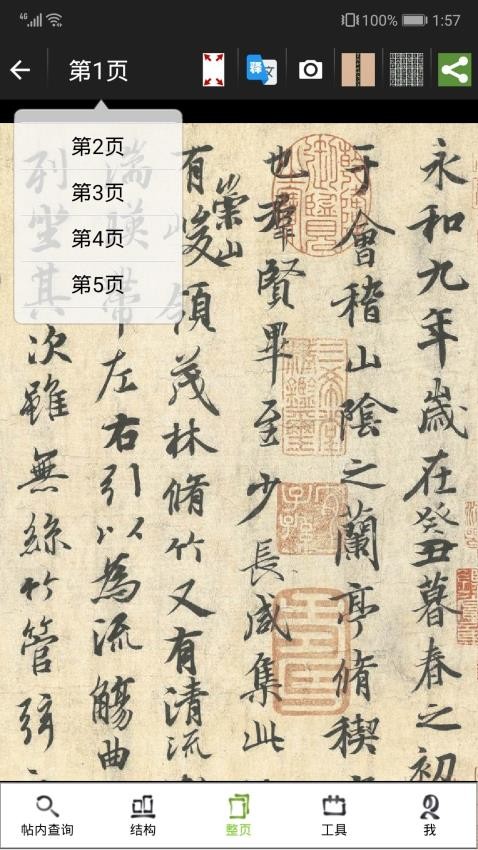 4G 100% 1:57
第1页
译 文
第2页
第3页
第4页
第5页
永和九年歲在癸丑暮春之初
于會稽山陰之蘭亭脩稧
也羣賢畢至少長咸集此
有崇山峻領茂林脩竹又有清流
湍暎帶左右引以為流觴曲
列坐其次雖無絲竹管弦
帖内查询
结构
整页
工具
我